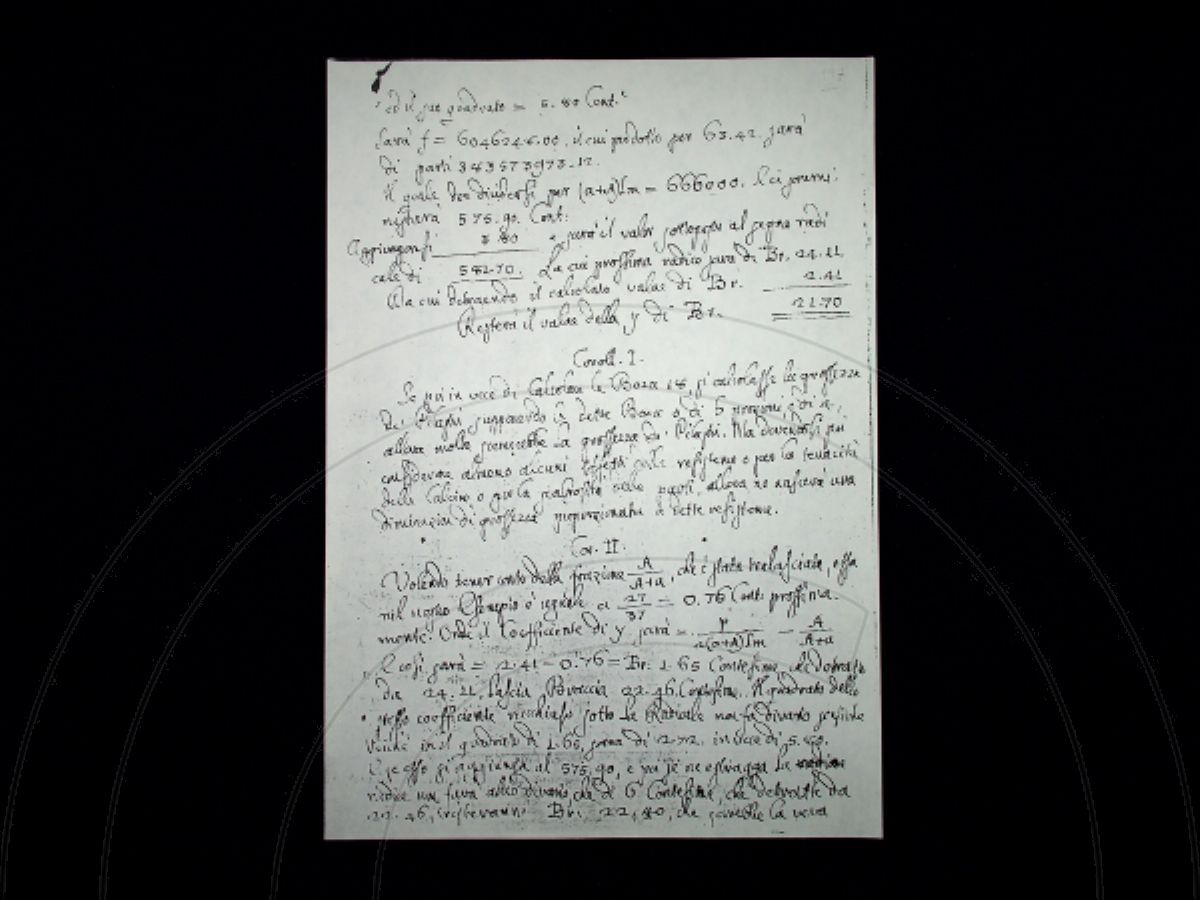 ed il suo quadrato = 5. 80 Cent.i
Sarà f = 6046246.00, il cui prodotto per 63.42. sarà
di parti 383573973.12.
Il quale dee dividersi per (a+A)Im = 666000. E ci
resterà 575.90. Cent:
Aggiungansi 5.80 sarà il valor sottoposto al segno radi
cale di 581.70. La cui prossima radice sarà di Br. 24.11
Da cui detraendo il calcolato value di Br. 2.41
Resterà il value della y di Br. 21.70
Coroll. I.
Se poi in vece di Calcolar la Boza si calcolasse la grossezza
de' Pilastri supponendo le dette Boze o di
allora molto scemerebbe la grossezza de' Pilastri. Ma dovendosi poi
considerare almeno alcuni effetti delle resistenze o per la tenacità
della Calcina o per la scabrosità delle allora ne nascerà una
diminuzion di grossezza proporzionata a dette resistenze.
Cor. II.
Volendo tener conto della frazione A/A+a, che è stata tralasciata, essa
nel nostro Esempio è uguale a 27/37 = 0.76 Cent. prossima-
mente. Onde il Coefficiente di y sarà = p/2(a+A)Im − A/A+a
E così sarà = 2.41 − 0.76 = Br. 1.65 Centesime, che detratte
da 24.11, lascia Braccia 22.46 Centesime. Il quadrato dello
stesso coefficiente racchiuso sotto la Radicale non fa divario sensibile
il quadrato di 1.65, sarà di 2.72. in vece di 5.80.
E se esso si aggiunga al 575.90, e poi se ne estragga la
radice non farà altro divario che di 6 Centesime, che detratte da
22.46, resteranno Br. 22.40, che sarebbe la vera